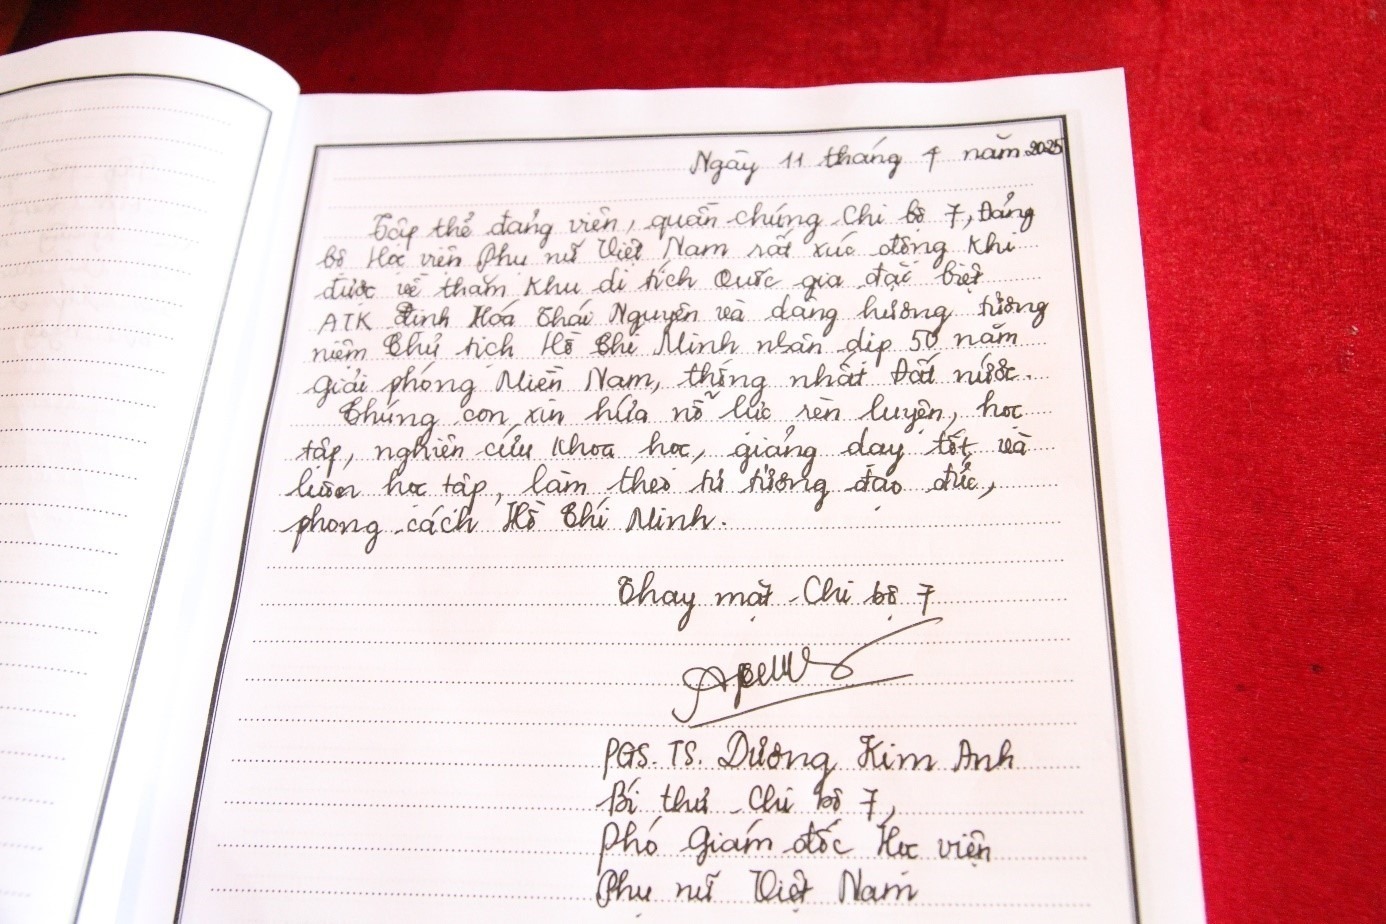 Ngày 11 tháng 4 năm 2025
Tập thể đảng viên, quần chúng Chi bộ 7, Đảng
bộ Học viện Phụ nữ Việt Nam rất xúc động khi
được về thăm Khu di tích Quốc gia đặc biệt
ATK Định Hóa Thái Nguyên và dâng hương tưởng
niệm Chủ tịch Hồ Chí Minh nhân dịp 50 năm
giải phóng Miền Nam, thống nhất Đất nước.
Chúng con xin hứa nỗ lực rèn luyện, học
tập, nghiên cứu khoa học, giảng dạy tốt và
luôn học tập, làm theo tư tưởng đạo đức,
phong cách Hồ Chí Minh.
Thay mặt Chi bộ 7
PGS. TS. Dương Kim Anh
Bí thư Chi bộ 7,
Phó Giám đốc Học viện
Phụ nữ Việt Nam